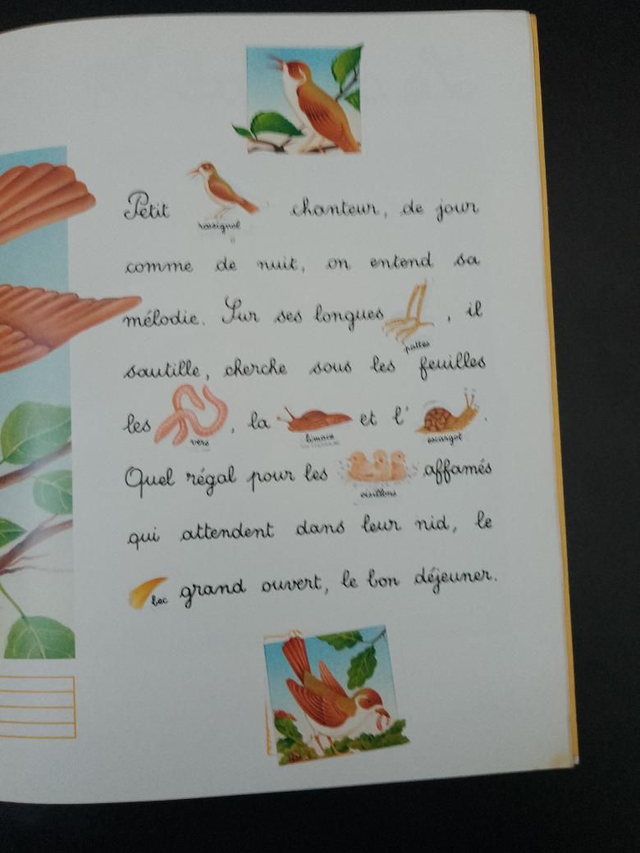 Petit chanteur, de jour
rossignol
comme de nuit, on entend sa
mélodie. Sur ses longues , il
pattes
sautille, cherche sous les feuilles
les , la et l' .
vers limace escargot
Quel régal pour les affamés
oisillons
qui attendent dans leur nid, le
bec grand ouvert, le bon déjeuner.